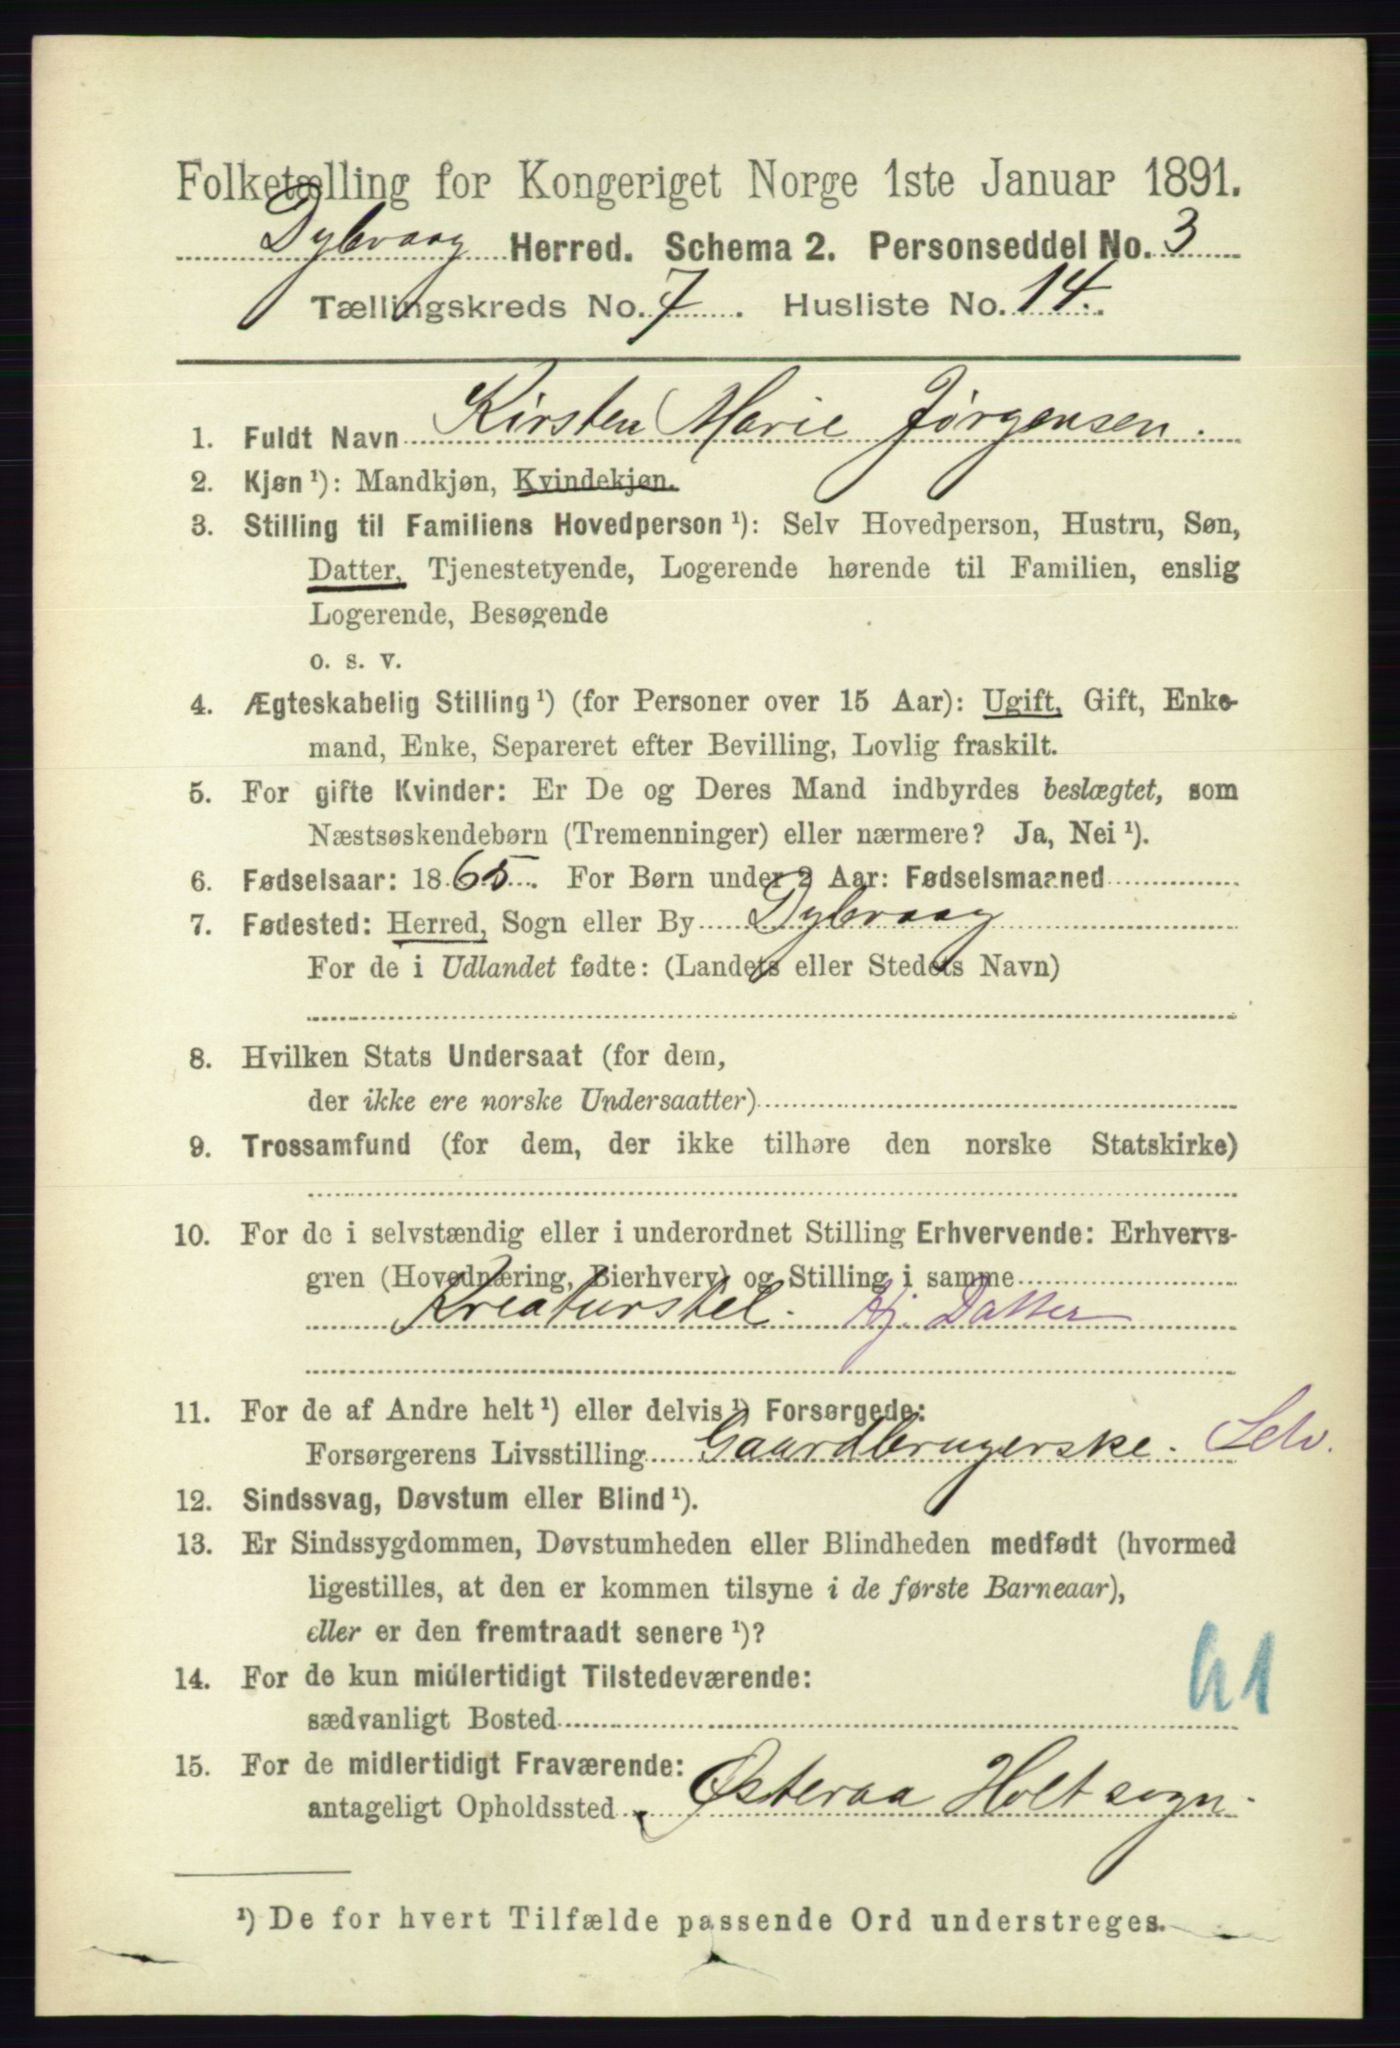 Folketælling for Kongeriget Norge 1ste Januar 1891.
Dybvaag Herred. Schema 2. Personseddel No. 3
Tællingskreds No. 7. Husliste No. 14.
1. Fuldt Navn Kirsten Marie Jørgensen.
2. Kjøn ¹): Mandkjøn, Kvindekjøn.
3. Stilling til Familiens Hovedperson ¹): Selv Hovedperson, Hustru, Søn,
Datter, Tjenestetyende, Logerende hørende til Familien, enslig
Logerende, Besøgende
o. s. v.
4. Ægteskabelig Stilling ¹) (for Personer over 15 Aar): Ugift, Gift, Enke-
mand, Enke, Separeret efter Bevilling, Lovlig fraskilt.
5. For gifte Kvinder: Er De og Deres Mand indbyrdes beslægtet, som
Næstsøskendebørn (Tremenninger) eller nærmere? Ja, Nei ¹).
6. Fødselsaar: 1865. For Børn under 2 Aar: Fødselsmaaned
7. Fødested: Herred, Sogn eller By Dybvaag
For de i Udlandet fødte: (Landets eller Stedets Navn)
8. Hvilken Stats Undersaat (for dem,
der ikke ere norske Undersaatter)
9. Trossamfund (for dem, der ikke tilhøre den norske Statskirke)
10. For de i selvstændig eller i underordnet Stilling Erhvervende: Erhvervs-
gren (Hovednæring, Bierhverv) og Stilling i samme
Kreaturstel. Hj. Datter
11. For de af Andre helt ¹) eller delvis ¹) Forsørgede:
Forsørgerens Livsstilling Gaardbrugerske. Selv.
12. Sindssvag, Døvstum eller Blind ¹).
13. Er Sindssygdommen, Døvstumheden eller Blindheden medfødt (hvormed
ligestilles, at den er kommen tilsyne i de første Barneaar),
eller er den fremtraadt senere ¹)?
14. For de kun midlertidigt Tilstedeværende:
sædvanligt Bosted
15. For de midlertidigt Fraværende:
antageligt Opholdssted Østeraa Holt sogn.
¹) De for hvert Tilfælde passende Ord understreges.